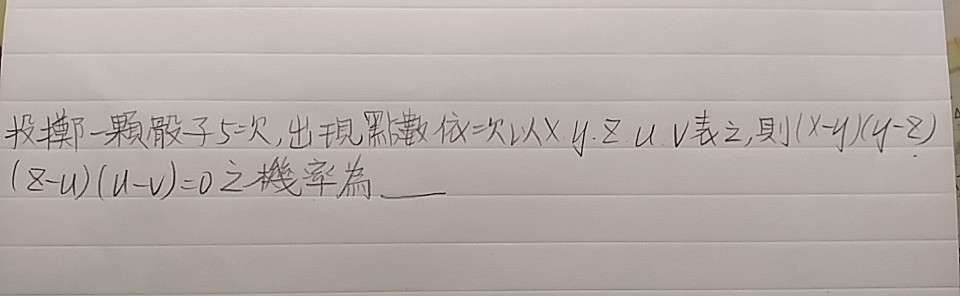 投擲一顆骰子5次,出現點數依次以x.y.z.u.v表之,則(x-y)(y-z)
(z-u)(u-v)=0之機率為___